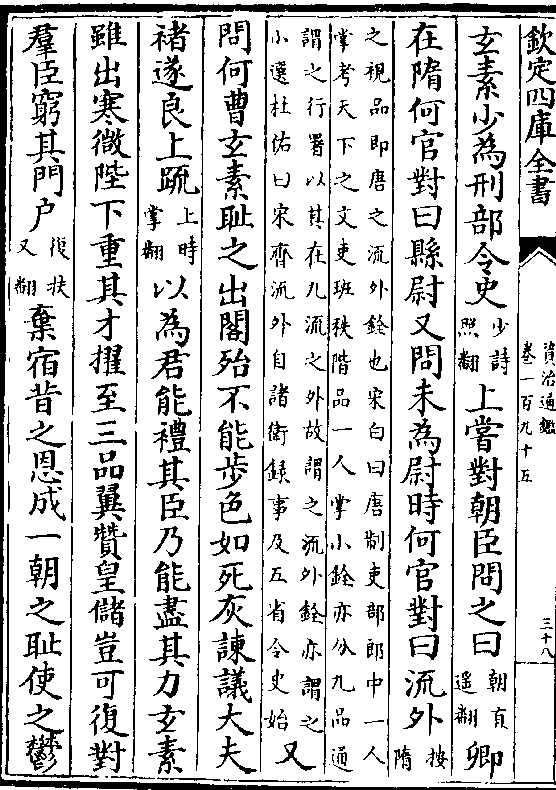 欽定四庫全書
資治通鑑
卷一百九十五
三十八
玄素少為刑部令史少詩照翻上嘗對朝臣問之曰朝直遥翻卿
在隋何官對曰縣尉又問未為尉時何官對曰流外按隋
之視品即唐之流外銓也宋白曰唐制吏部郎中一人
掌考天下之文吏班秩階品一人掌小銓亦分九品通
謂之行署以其在九流之外故謂之流外銓亦謂之
小選杜佑曰宋齊流外自諸衛録事及五省令史始又
問何曹玄素恥之出閤殆不能步色如死灰諫議大夫
褚遂良上疏上時掌翻以為君能禮其臣乃能盡其力玄素
雖出寒微陛下重其才擢至三品翼贊皇儲豈可復對
羣臣窮其門户復扶又翻棄宿昔之恩成一朝之恥使之鬱